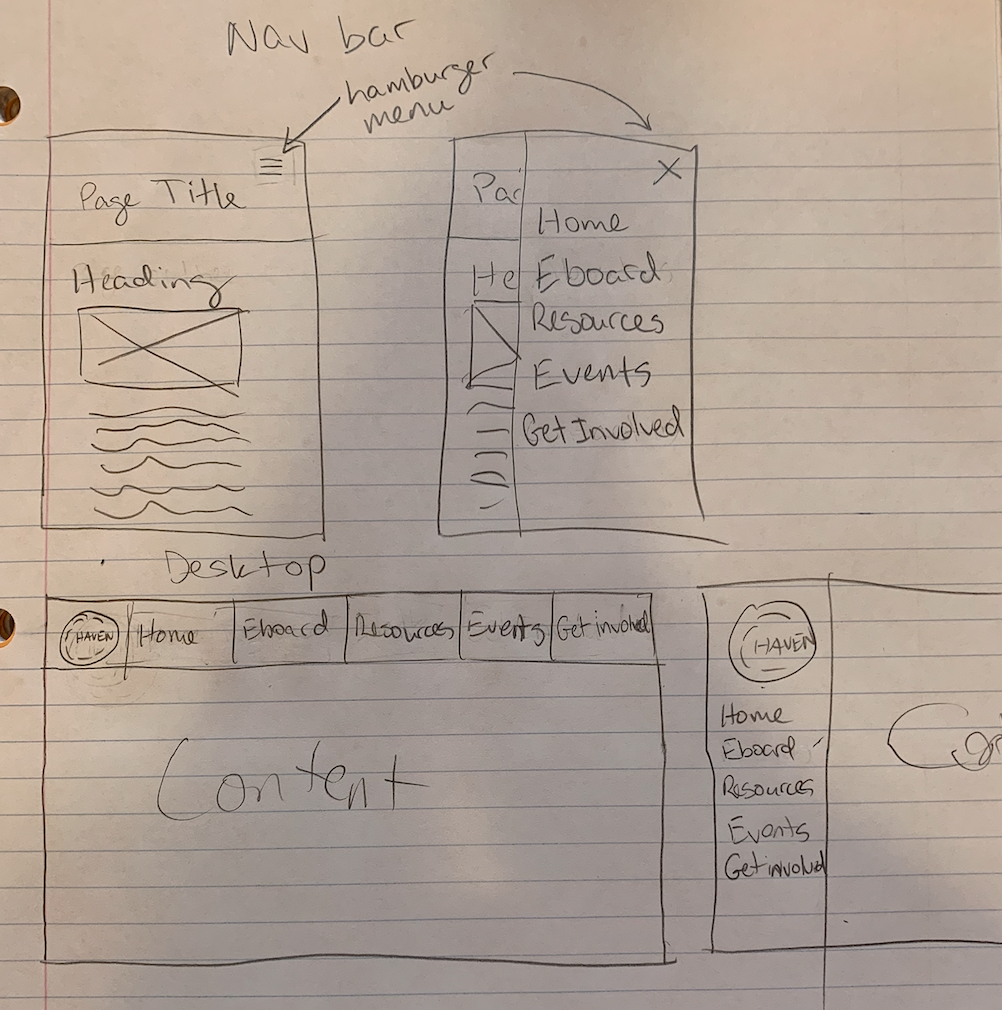 Nav bar
hamburger
menu
Page Title
Heading
X
Pag
Home
He Eboard
Resources
Events
Get Involved
Desktop
HAVEN Home Eboard Resources Events Get involved
Content
HAVEN
Home
Eboard
Resources
Events
Get involved
Con